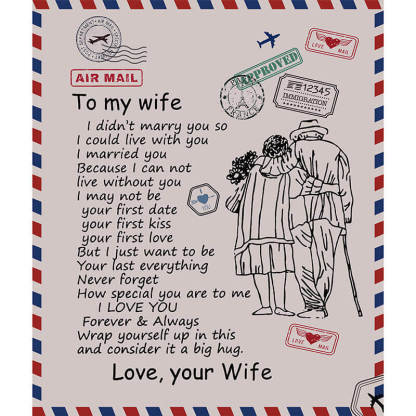 AIR MAIL
APPROVED
FRANCE
LOVE MAIL
12345
IMMIGRATION
To my wife
I didn't marry you so
I could live with you
I married you
Because I can not
live without you
I may not be
your first date
your first kiss
your first love
But I just want to be
Your last everything
Never forget
How special you are to me
I LOVE YOU
Forever & Always
Wrap yourself up in this
and consider it a big hug.
Love, your Wife
LOVE MAIL